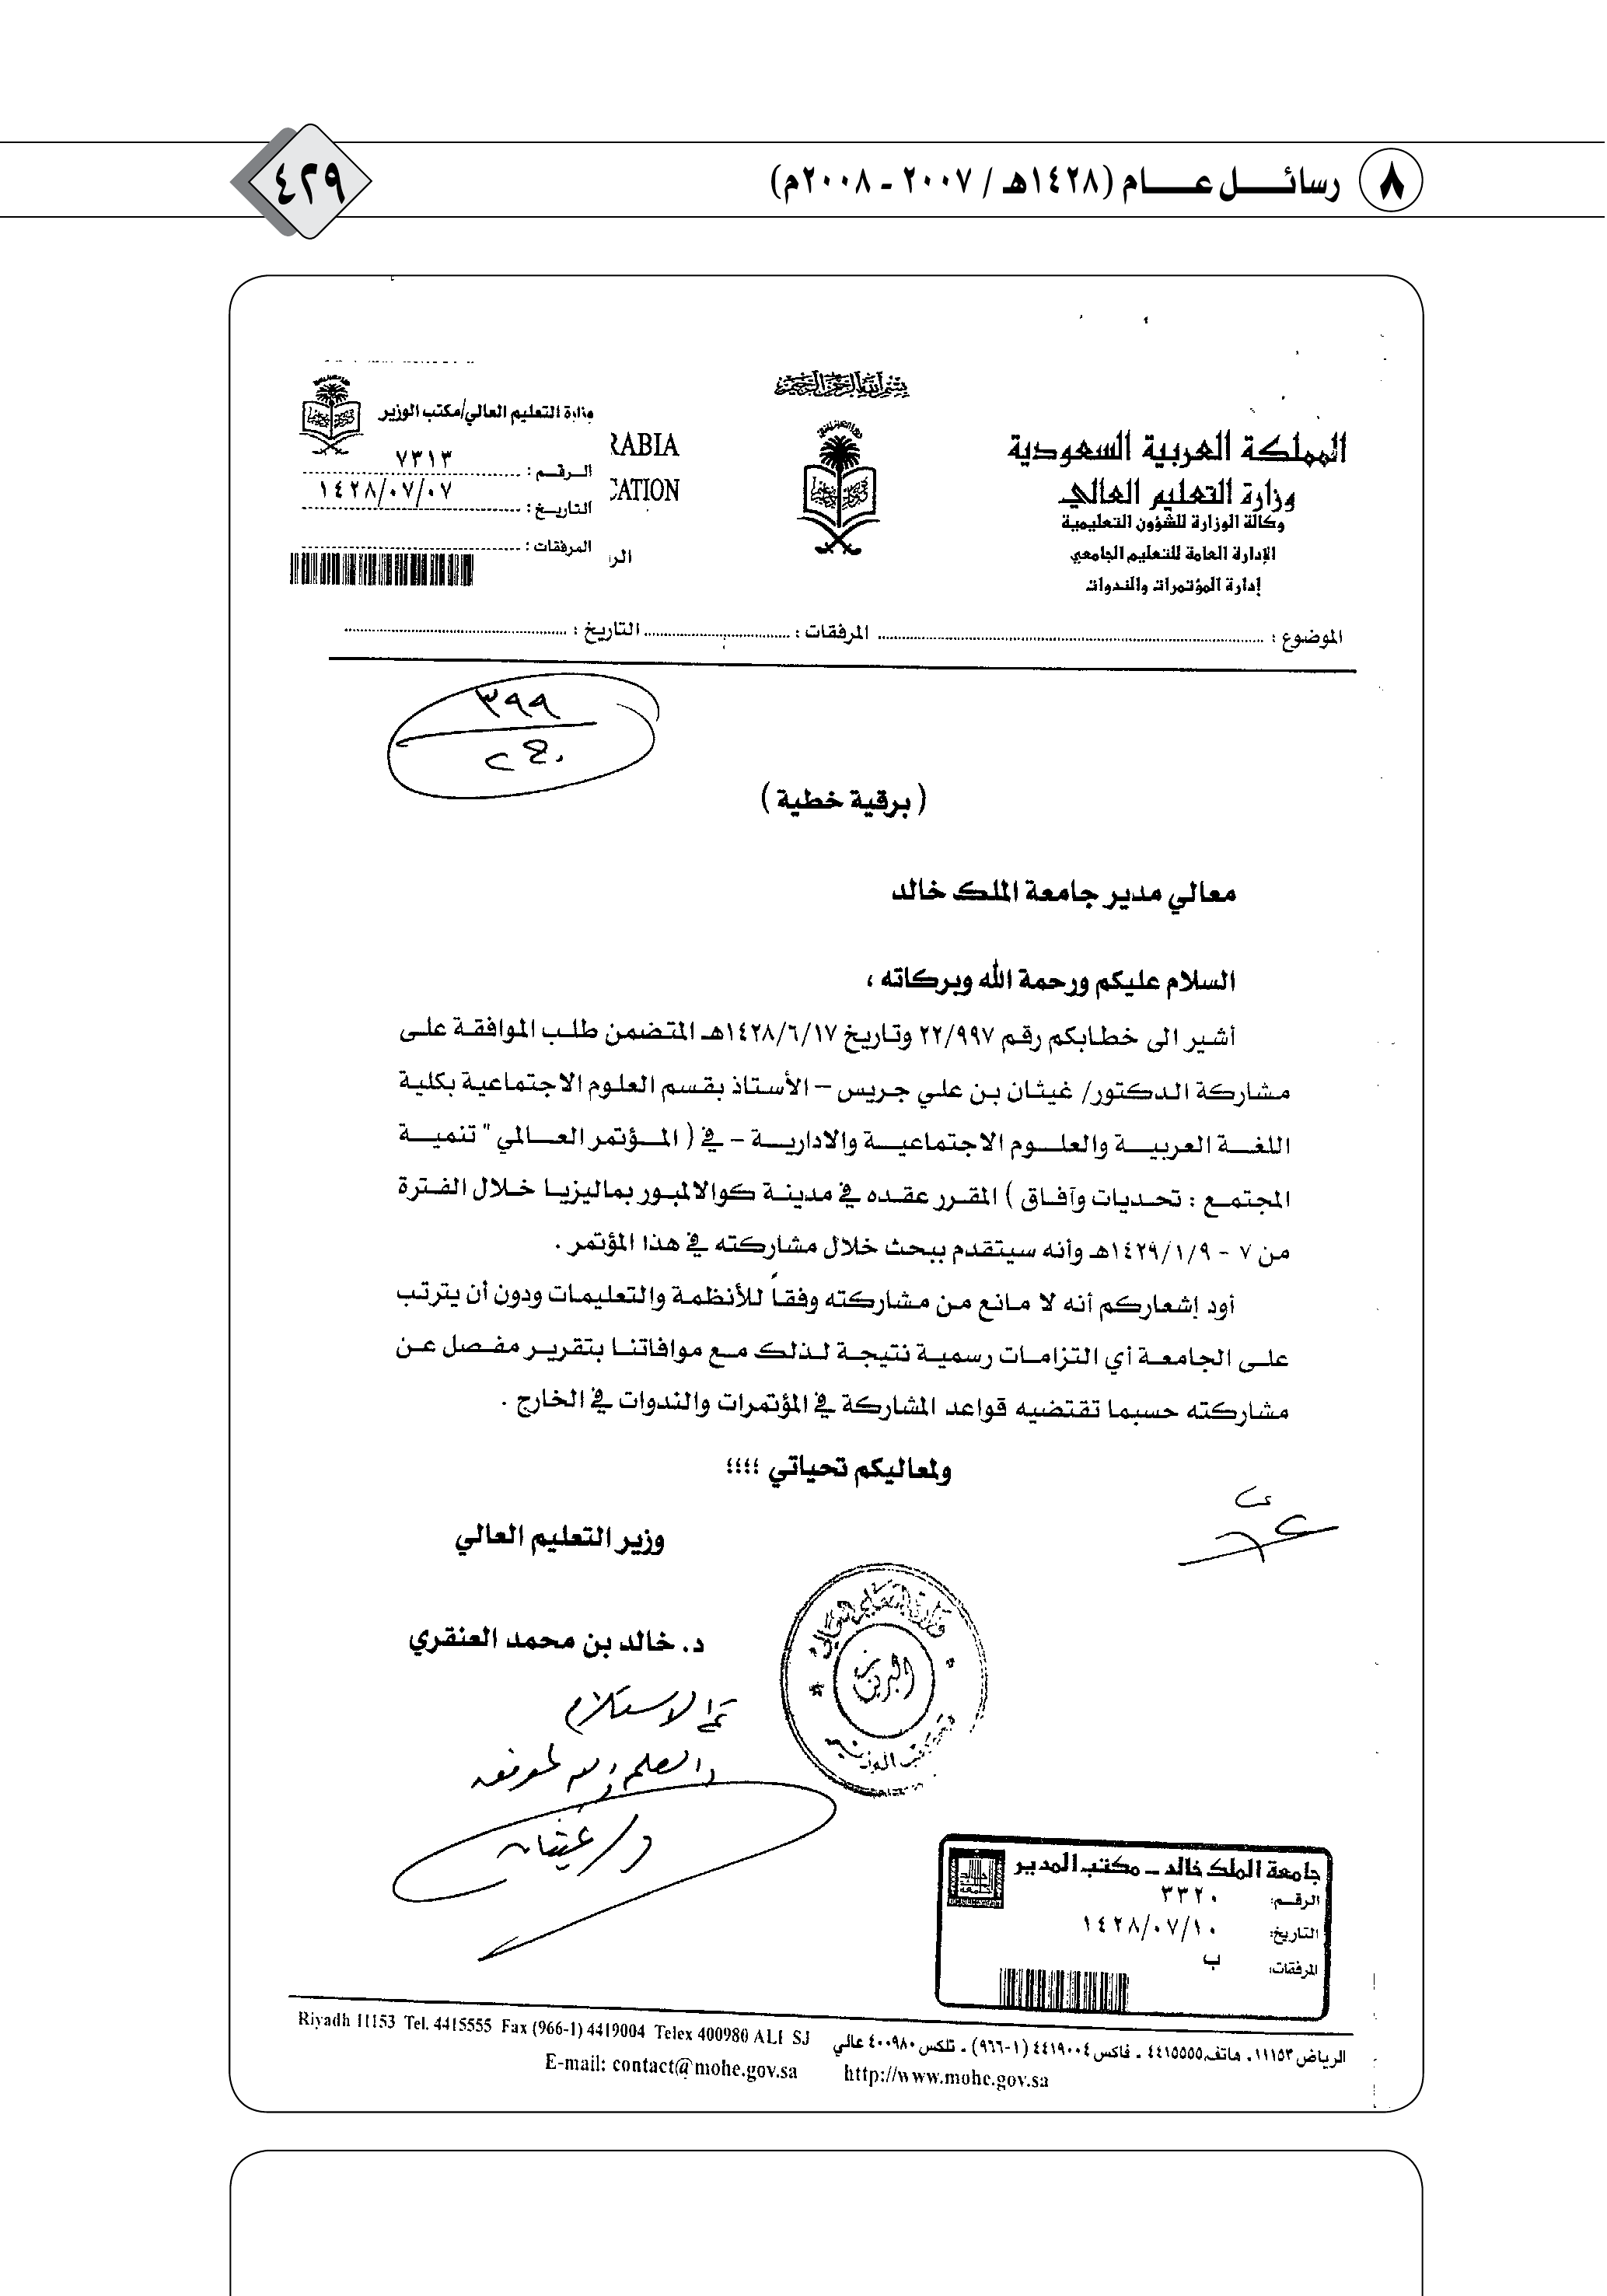 ٨ رسائل عام (١٤٢٨هـ / ٢٠٠٧ - ٢٠٠٨م)
٤٢٩
المملكة العربية السعودية
وزارة التعليم العالي
وكالة الوزارة للشؤون التعليمية
الإدارة العامة للتعليم الجامعي
إدارة المؤتمرات والندوات
بسم الله الرحمن الرحيم
RABIA
CATION
الر
وزارة التعليم العالي/مكتب الوزير
الرقم : ٧٣١٣
التاريخ : ١٤٢٨/٠٧/٠٧
المرفقات :
الموضوع : المرفقات : التاريخ :
٣٩٩
( برقية خطية )
معالي مدير جامعة الملك خالد
السلام عليكم ورحمة الله وبركاته ،
أشير الى خطابكم رقم ٢٢/٩٩٧ وتاريخ ١٤٢٨/٦/١٧هـ المتضمن طلب الموافقة على
مشاركة الدكتور/ غيثان بن علي جريس – الأستاذ بقسم العلوم الاجتماعية بكلية
اللغة العربية والعلوم الاجتماعية والادارية – في ( المؤتمر العالمي " تنمية
المجتمع : تحديات وآفاق ) المقرر عقده في مدينة كوالالمبور بماليزيا خلال الفترة
من ٧ - ١٤٢٩/١/٩هـ وأنه سيتقدم ببحث خلال مشاركته في هذا المؤتمر .
أود إشعاركم أنه لا مانع من مشاركته وفقاً للأنظمة والتعليمات ودون أن يترتب
على الجامعة أي التزامات رسمية نتيجة لذلك مع موافاتنا بتقرير مفصل عن
مشاركته حسبما تقتضيه قواعد المشاركة في المؤتمرات والندوات في الخارج .
ولمعاليكم تحياتي ؛؛؛؛
وزير التعليم العالي
د. خالد بن محمد العنقري
وزارة التعليم العالي
مكتب الوزير
تم الاستلام
والله الموفق
د/ غيثان
جامعة الملك خالد ــ مكتب المدير
الرقم: ٣٣٢٠
التاريخ: ١٤٢٨/٠٧/١٠
المرفقات: ب
الرياض ١١١٥٣ . هاتف ٤٤١٥٥٥٥ . فاكس ٤٤١٩٠٠٤ (١-٩٦٦) . تلكس ٤٠٠٩٨٠ عالي
Riyadh 11153 Tel. 4415555 Fax (966-1) 4419004 Telex 400980 ALI SJ
E-mail: contact@mohe.gov.sa http://www.mohe.gov.sa